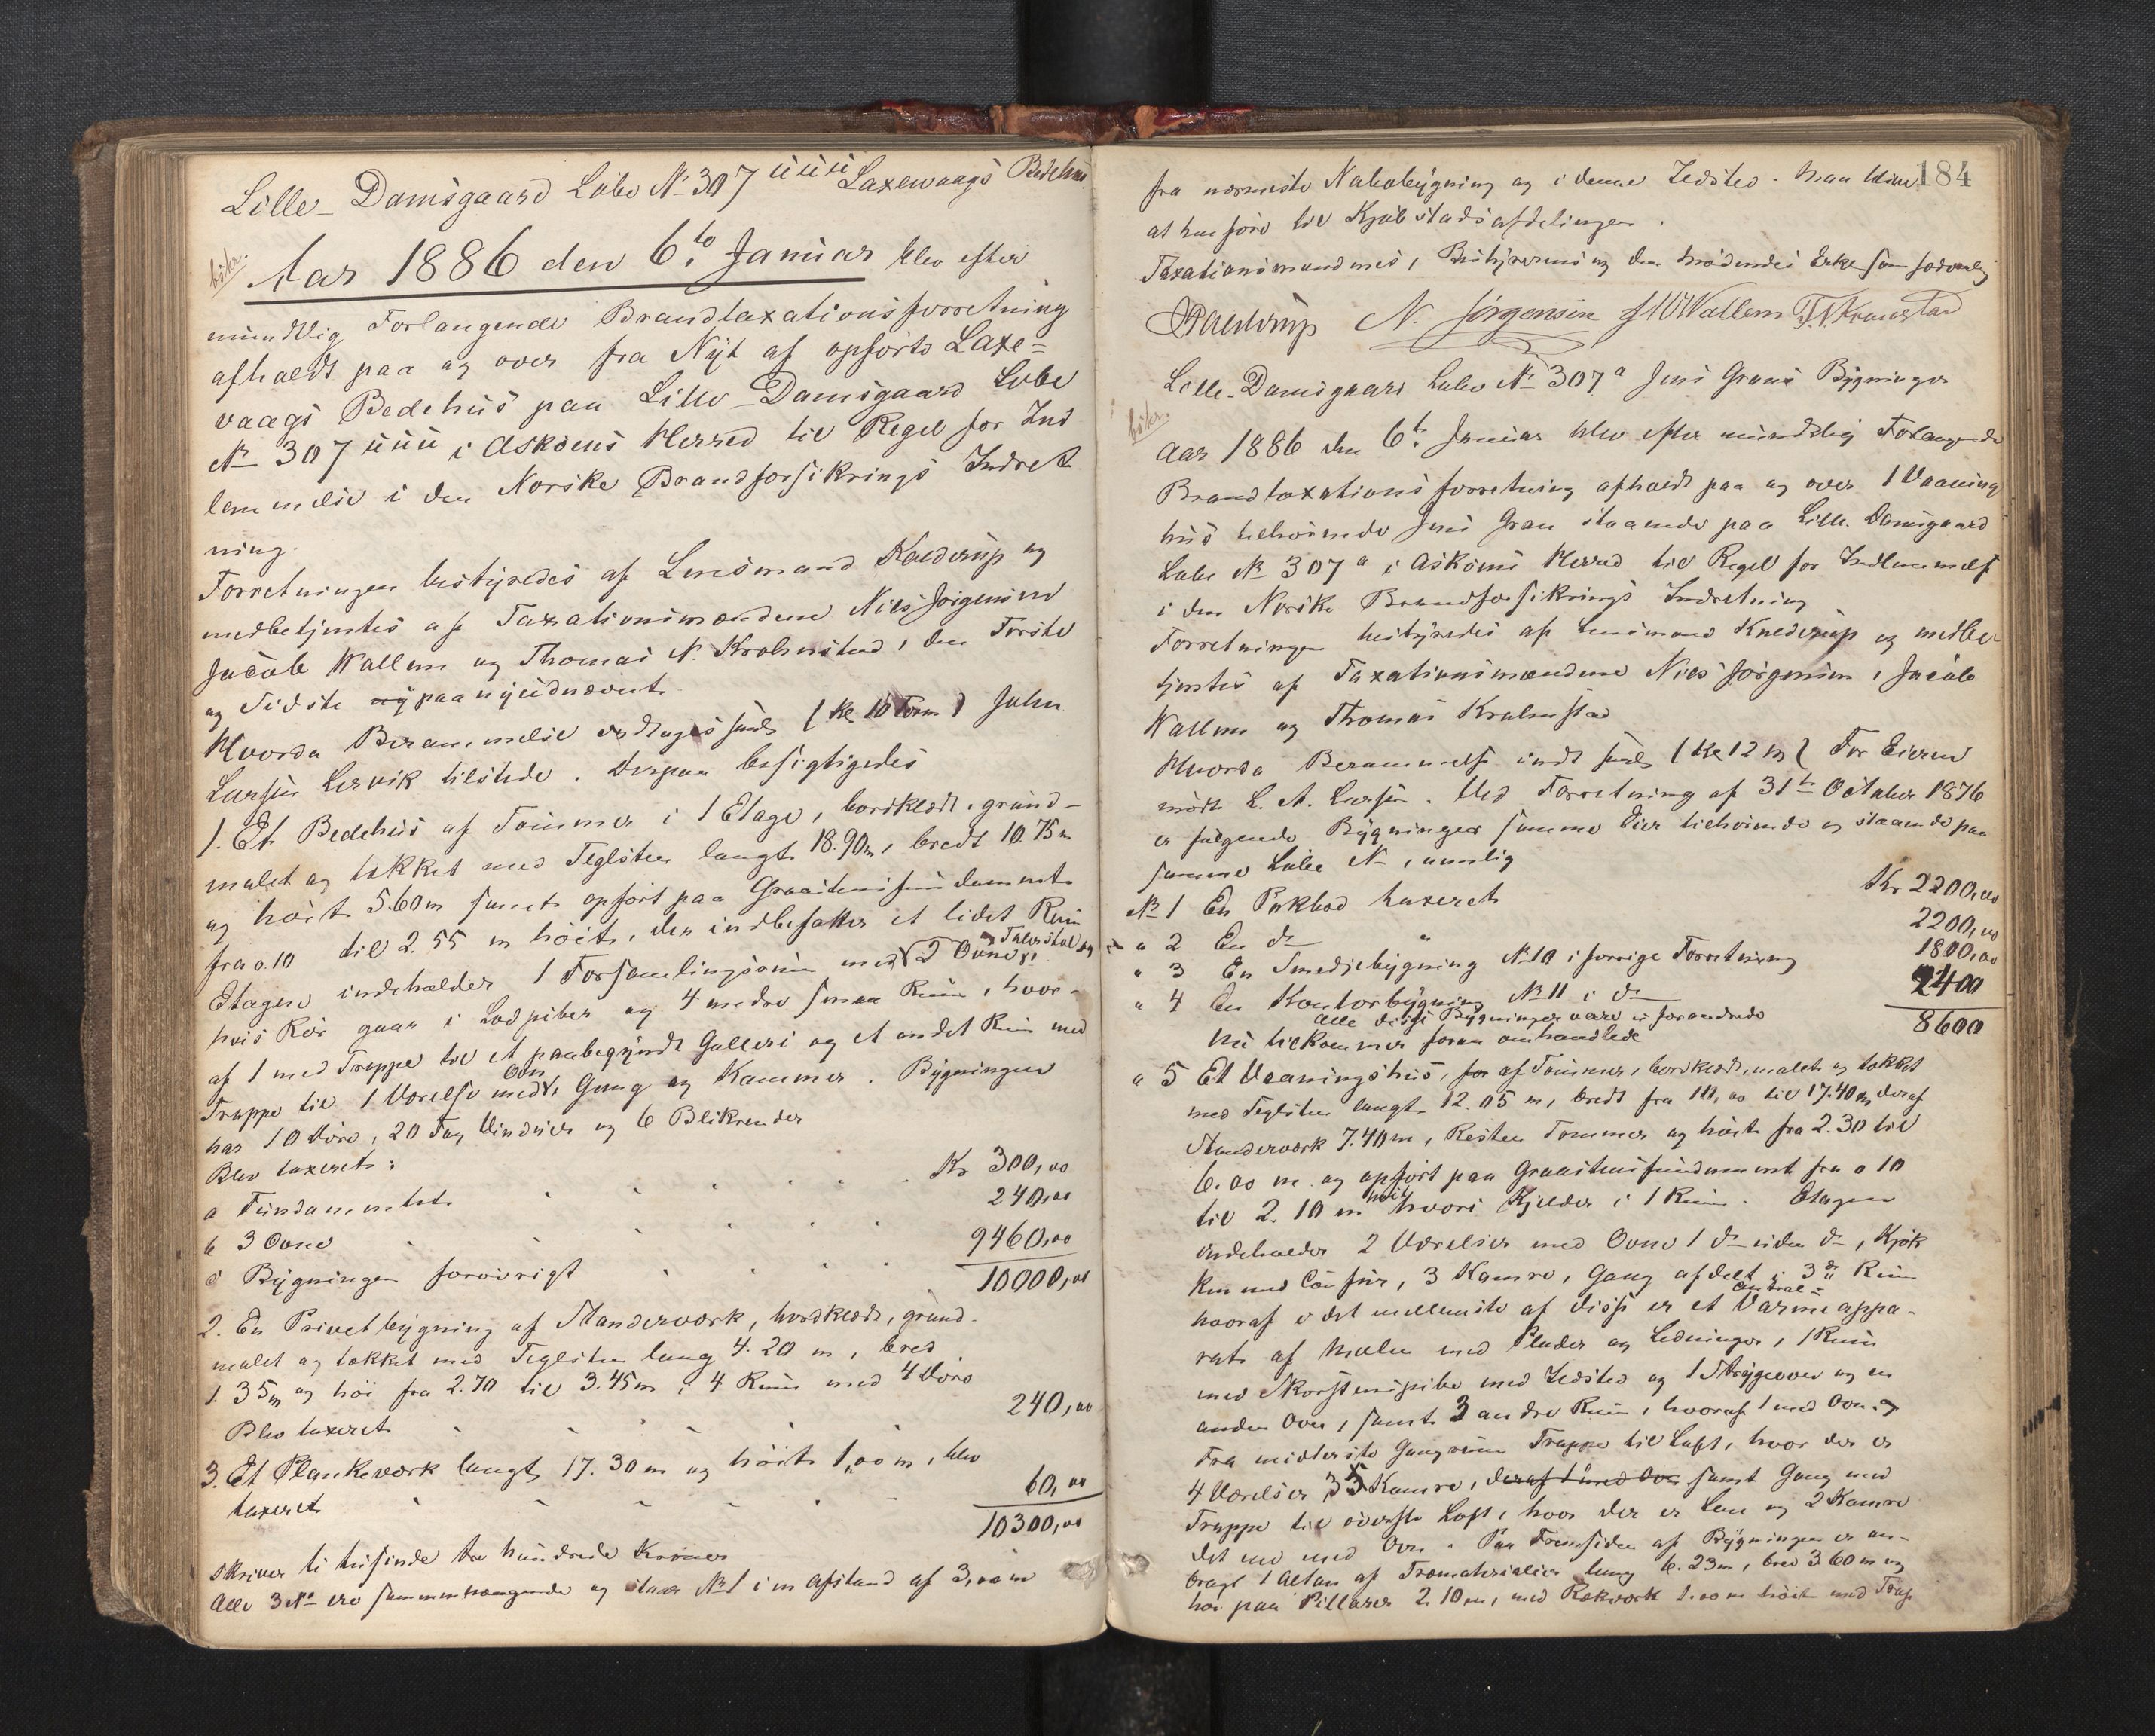 Lille-Damsgaard Löbe № 307 üüü Laxevaags Bedehus
bskr.
Aar 1886 den 6te Januar blev efter
mundtlig Forlangende Brandtaxationsforretning
afholdt paa og over fra Nyt af opförte Laxe=
vaags Bedehus paa Lille-Damsgaard Löbe
№ 307 üüü i Asköens Herred til Regel for Ind
lemmelse i den Norske Brandforsikrings Indret
ning.
Forretningen bestyredes af Lensmand Kaldrup og
medbetjentes af Taxationsmændene Niels Jörgensen
Jacob Wallem og Thomas N. Krohnstad, den Förste
og Sidste paa ny udnævnt.
Hvorda Berammelse indtages fandt (Kl 10 Form) John
Larsen Lervik tilstede. Derpaa besigtigedes
1. Et Bedehus af Tömmer i 1 Etage, bordklædt, grund-
malet og takket med Teglsten langt 18.90m, bredt 10.75m
og höit 5.60m samt opfört paa Graastensfundament
fra 0.10 til 2.55 m höit, der indbefatter et lidet Rum
Etagen indeholder 1 Forsamlingsrum med Talerstol og 2 Ovne,
hvis Rör gaar i Lodpiber og 4 mindre smaa Rum, hvor-
af 1 med Trappe til et paabegyndt Galleri og et andet Rum med
Trappe til 1 Værelse med Ovn, Gang og Kammer. Bygningen
har 10 Döre, 20 Fag Vinduer og 6 Blikrender
Blev taxeret:
a Fundamentet Kr 300,00
b 3 Ovne 240,00
c Bygningen forövrigt 9460,00
10000,00
2. En Privetbygning af Standerværk, bordklædt, grund-
malet og takket med Teglsten lang 4.20 m, bred
1.35m og höi fra 2.70 til 3.45m i 4 Rum med 4 Döre
Blev taxeret 240,00
3. Et Plankeværk langt 17.30m og höit 1,00m, blev
taxeret 60,00
10300,00
skriver ti tusinde tre hundrede Kroner
Alle 3 № ere sammenhængende og staar № 1 i en Afstand af 3,00m
184
fra nærmeste Nabobygning og i denne Ildsted. Man
at henföre til Kjöbstadsafdelingen.
Taxationsmændenes, Bestyrerens og den mödendes Erke som sædvanlig
Kaldrup N. Jörgensen J W Wallem T. N. Kronstad
Lille-Damsgaard Löbe № 307 a Jens Grans Bygninger
bskr.
Aar 1886 den 6te Januar blev efter mundtlig Forlangende
Brandtaxationsforretning afholdt paa og over 1 Vaaning
hus tilhörende Jens Gran staaende paa Lille-Damsgaard
Löbe № 307 a i Asköens Herred til Regel for Indlemmelse
i den Norske Brandforsikrings Indretning
Forretningen bestyredes af Lensmand Kaldrup og medbe
tjentes af Taxationsmændene Niels Jörgensen, Jacob
Wallem og Thomas Krohnstad
Hvorda Berammelse indt fandt (Kl 12 M) For Eieren
mödte L. A. Larsen. Ved Forretning af 31te October 1876
er fölgende Bygninger samme Eier tilhörende og staaende paa
samme Löbe №, nemlig
№ 1 En Pakbod taxeret Kr 2200,00
" 2 En do " 2200,00
" 3 En Smediebygning № 10 i forrige Forretning 1800,00
" 4 En Kontorbygning № 11 i do 2400
Alle disse Bygninger vare uforandrede 8600
Nu tilkommer foran omhandlede
" 5 Et Vaaningshus, af Tömmer, bordklædt, malet og takket
med Teglsten langt 12.05 m, bredt fra 10,00 til 17.40m, deraf
Standerværk 7.40m, Resten Tömmer og höit fra 2.30 til
6.00 m. og opfört paa Graastensfundament fra 0.10
til 2.10 m höit, hvori Kjelder i 1 Rum. Etagen
indeholder 2 Værelser med Ovne 1 do uden do, Kjök
ken med Comfur, 3 Kamre, Gang afdelt i 3de Rum
hvoraf i det mellemste af disse er et Central- Varmeappa-
rat af Malm med Plader og Ledninger, 1 Rum
med Skorstenspibe med Ildsted og 1 Strygeovn og en
anden Ovn, samt 3 andre Rum, hvoraf 1 med Ovn.
Fra midterste Gangrum Trappe til Loft, hvor der er
4 Værelser, 5 Kamre, deraf 1 med Ovn samt Gang med
Trappe til överste Loft, hvor der er Lem og 2 Kamre
det ene med Ovn. Paa Fremsiden af Bygningen er an-
bragt 1 Altan af Træmaterialier lang 6.23m, bred 3.60m og
höi paa Pillarer 2.10m, med Rækværk 1.00 m höit med Trap